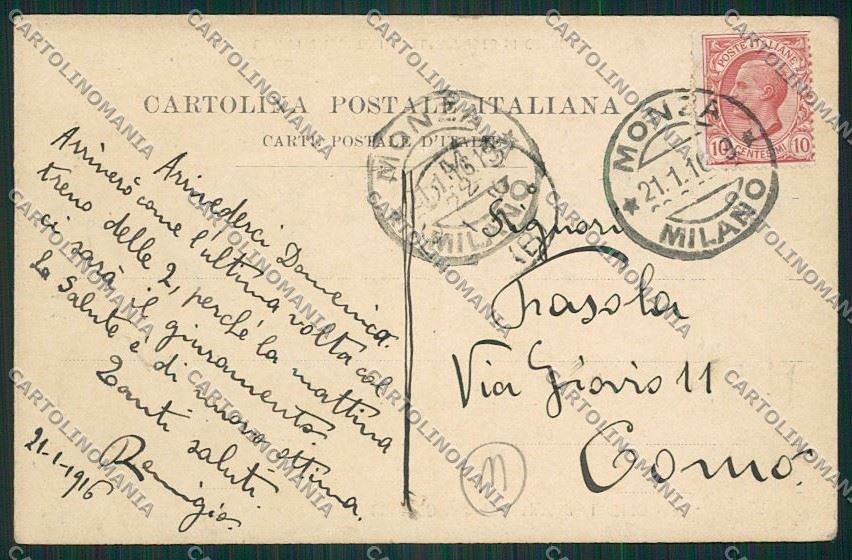 CARTOLINA POSTALE ITALIANA
CARTE POSTALE D'ITALIE
Arrivederci Domenica.
Arriverò come l'ultima volta col
treno delle 2, perché la mattina
ci sarà il giuramento.
La Salute è di nuovo ottima.
Tanti saluti.
Remigio.
21-1-1916
Signori
Frasola
Via Giovio 11
Como.
11
POSTE ITALIANE
10 CENTESIMI 10
MONZA
21.1.16
MILANO
MONZA
MILANO
CARTOLINOMANIA